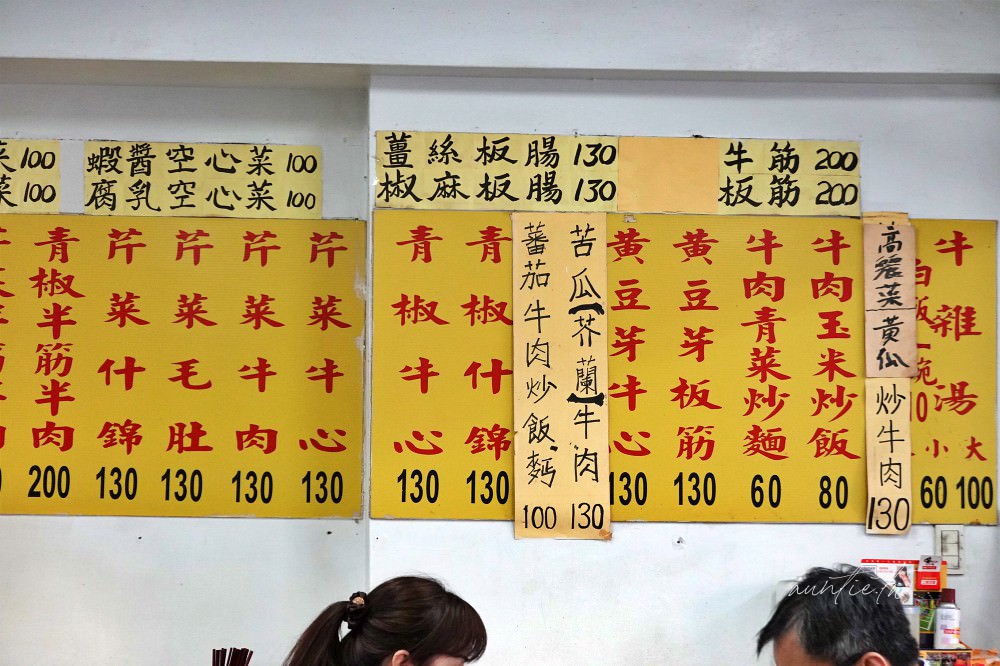 菜100
菜100
蝦醬空心菜100
腐乳空心菜100
薑絲板腸130
椒麻板腸130
牛筋200
板筋200
青椒半筋半肉200
芹菜什錦130
芹菜毛肚130
芹菜牛肉130
芹菜牛心130
青椒牛心130
青椒什錦130
蕃茄牛肉炒飯.麵100
苦瓜(芥蘭)牛肉130
黃豆芽牛心130
黃豆芽板筋130
牛肉青菜炒麵60
牛肉玉米炒飯80
高麗菜
黃瓜
炒牛肉130
白飯一碗10
牛雜湯
小60
大100
auntie.ta